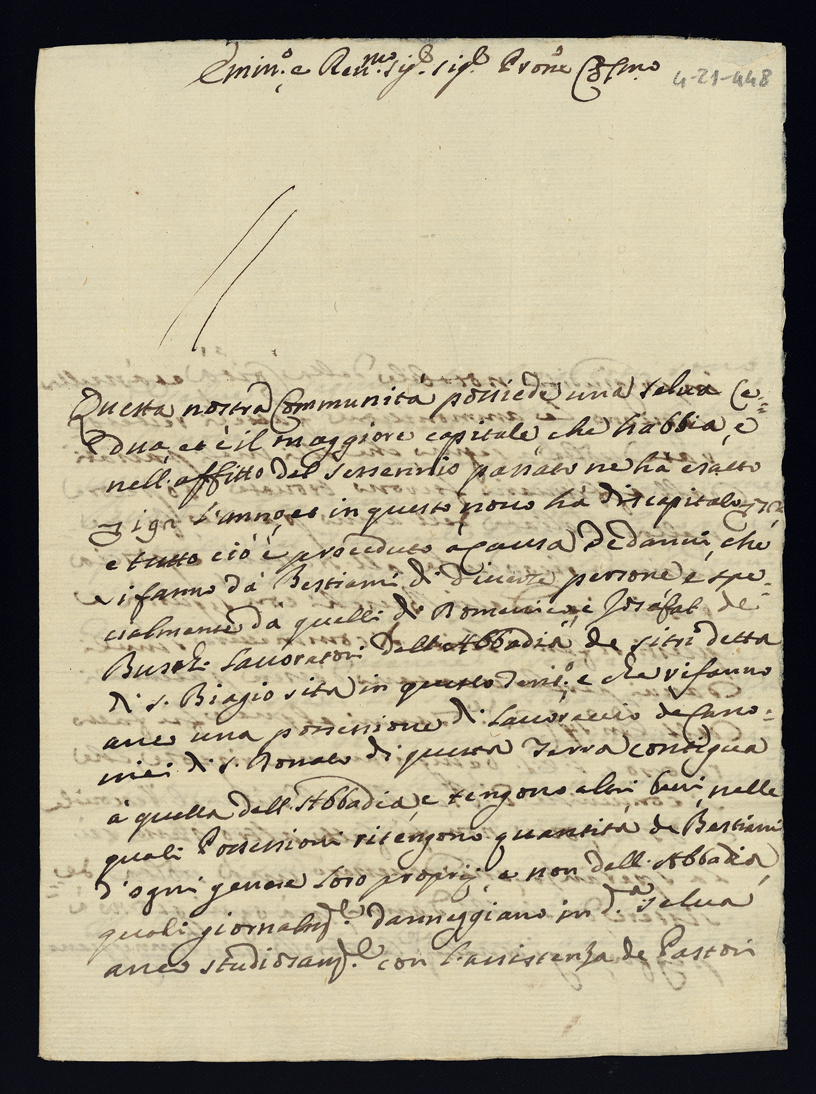 Emin.º e Rev.mo Sig.r Sig.r Prōne Col.mo
4-21-448
Questa nostra Communità possiede una selva Ce=
dua et è il maggiore capitale che habbia, e
nell'affitto del sessennio passato ne ha esatto
l'anno, et in questo novo ha discapitato
e tutto ciò è proceduto à causa de danni, che
si fanno dà Bestiami di diverse persone e spe=
cialmente da quelli di Domenico, e Josafat de
Lavoratori dell'Abbadia de siti detta
di S. Biagio sita in questo terri.º e che rifanno
anco una possessione di Lavoreccio de Cano=
nici di S. Donato di questa Terra contigua
à quella dell'Abbadia, e tengono altri beni, nelle
quali Possessioni ritengono quantità de Bestiami
d'ogni genere loro proprij, e non dell'Abbadia,
quali giornalm.te danneggiano in d.a selva
anco studiosam.te con l'assistenza de Pastori